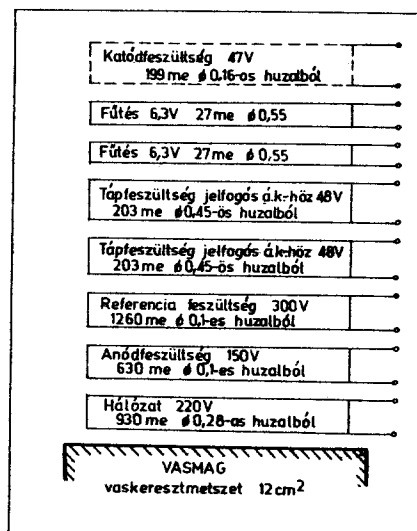 Katódfeszültség 47V
199 me ø 0,16-os huzalból
Fűtés 6,3V 27 me ø 0,55
Fűtés 6,3V 27 me ø 0,55
Tápfeszültség jelfogós á.k.-höz 48V
203 me ø 0,45-ös huzalból
Tápfeszültség jelfogós á.k.-höz 48V
203 me ø 0,45-ös huzalból
Referencia feszültség 300V
1260 me ø 0,1-es huzalból
Anódfeszültség 150V
630 me ø 0,1-es huzalból
Hálózat 220V
930 me ø 0,28-as huzalból
VASMAG
vaskeresztmetszet 12cm²